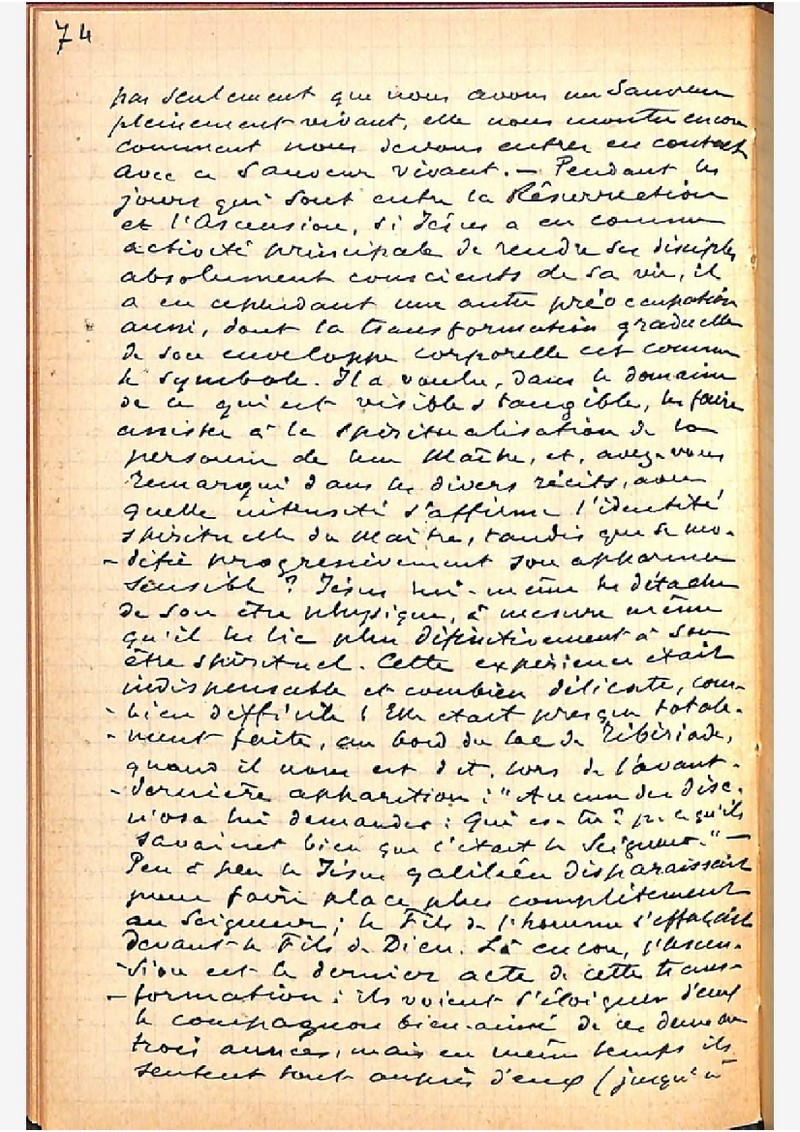 74
pas seulement que nous avons un Sauveur
pleinement vivant, elle nous montre encore
comment nous devons entrer en contact
avec ce Sauveur vivant. — Pendant les
jours qui sont entre la Résurrection
et l'Ascension, si Jésus a eu comme
activité principale de rendre ses disciples
absolument conscients de sa vie, il
a eu cependant une autre préoccupation
aussi, dont la transformation graduelle
de son enveloppe corporelle est comme
le symbole. Il a voulu, dans le domaine
de ce qui est visible & tangible, les faire
assister à la spiritualisation de la
personne de leur Maître, et, avez-vous
remarqué dans les divers récits, avec
quelle intensité s'affirme l'identité
spirituelle du Maître, tandis que se mo-
-difie progressivement son apparence
sensible ? Jésus lui-même les détache
de son être physique, à mesure même
qu'il les lie plus définitivement à son
être spirituel. Cette expérience était
indispensable et combien délicate, com-
-bien difficile ! Elle était presque totale-
-ment faite, au bord du lac de Tibériade,
quand il nous est dit, lors de l'avant-
-dernière apparition : "Aucun des disc.
n'osa lui demander : Qui es-tu ? p. ce qu'ils
savaient bien que c'était le Seigneur." —
Peu à peu le Jésus galiléen disparaissait
pour faire place plus complètement
au Seigneur ; le Fils de l'homme s'effaçait
devant le Fils de Dieu. Là encore, l'ascen-
-sion est le dernier acte de cette trans-
-formation : ils voient s'éloigner d'eux
le compagnon bien-aimé de ces deux ou
trois années, mais en même temps ils
sentent tout auprès d'eux (jusqu'à